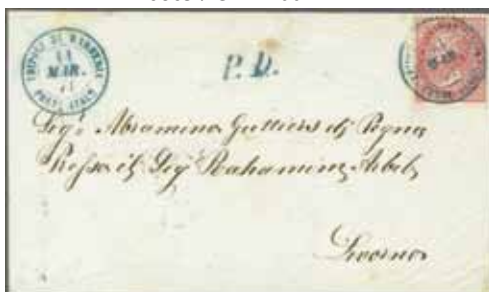 TRIPOLI DI BARBERIA
11
MAR.
POSTE ITALE
P. D.
Sigr Abramino Guttieres di Pegna
Presso il Sigr Rahamino Arbib
Livorno